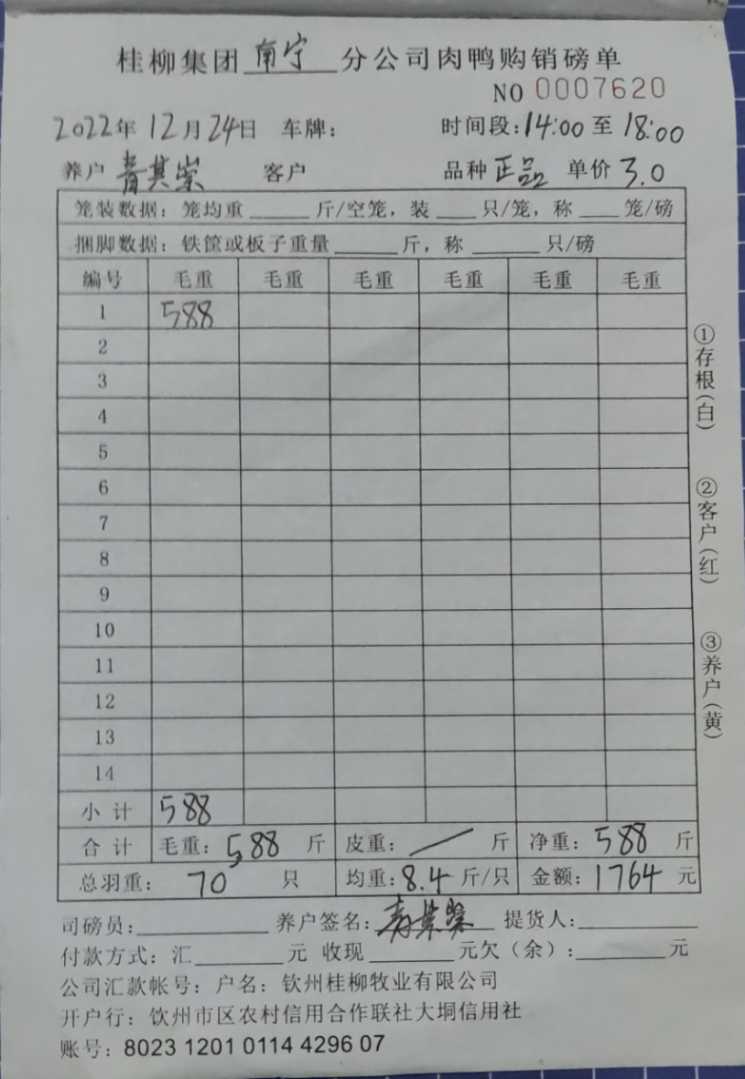 桂柳集团南宁分公司肉鸭购销磅单
NO 0007620
2022年12月24日 车牌: 时间段:14:00至18:00
养户 青其崇 客户 品种 正品 单价 3.0
笼装数据: 笼均重____斤/空笼, 装___只/笼, 称___笼/磅
捆脚数据: 铁筐或板子重量____斤, 称____只/磅
编号 毛重 毛重 毛重 毛重 毛重 毛重
1 588
2
3
4
5
6
7
8
9
10
11
12
13
14
小计 588
合计 毛重: 588 斤 皮重: / 斤 净重: 588 斤
总羽重: 70 只 均重: 8.4 斤/只 金额: 1764 元
司磅员:________ 养户签名: 青其崇 提货人:________
付款方式: 汇____元 收现____元欠(余):____元
公司汇款帐号: 户名: 钦州桂柳牧业有限公司
开户行: 钦州市区农村信用合作联社大垌信用社
账号: 8023 1201 0114 4296 07
①存根(白)
②客户(红)
③养户(黄)